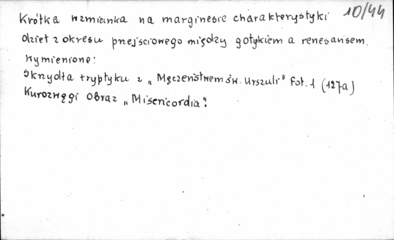 10/44
Krótka wzmianka na marginesie charakterystyki
dzieł z okresu przejściowego między gotykiem a renesansem.
Wymienione:
Skrzydła tryptyku z „Męczeństwem św. Urszuli" fot. 1 (127a)
Kurozwęgi obraz „Misericordia".